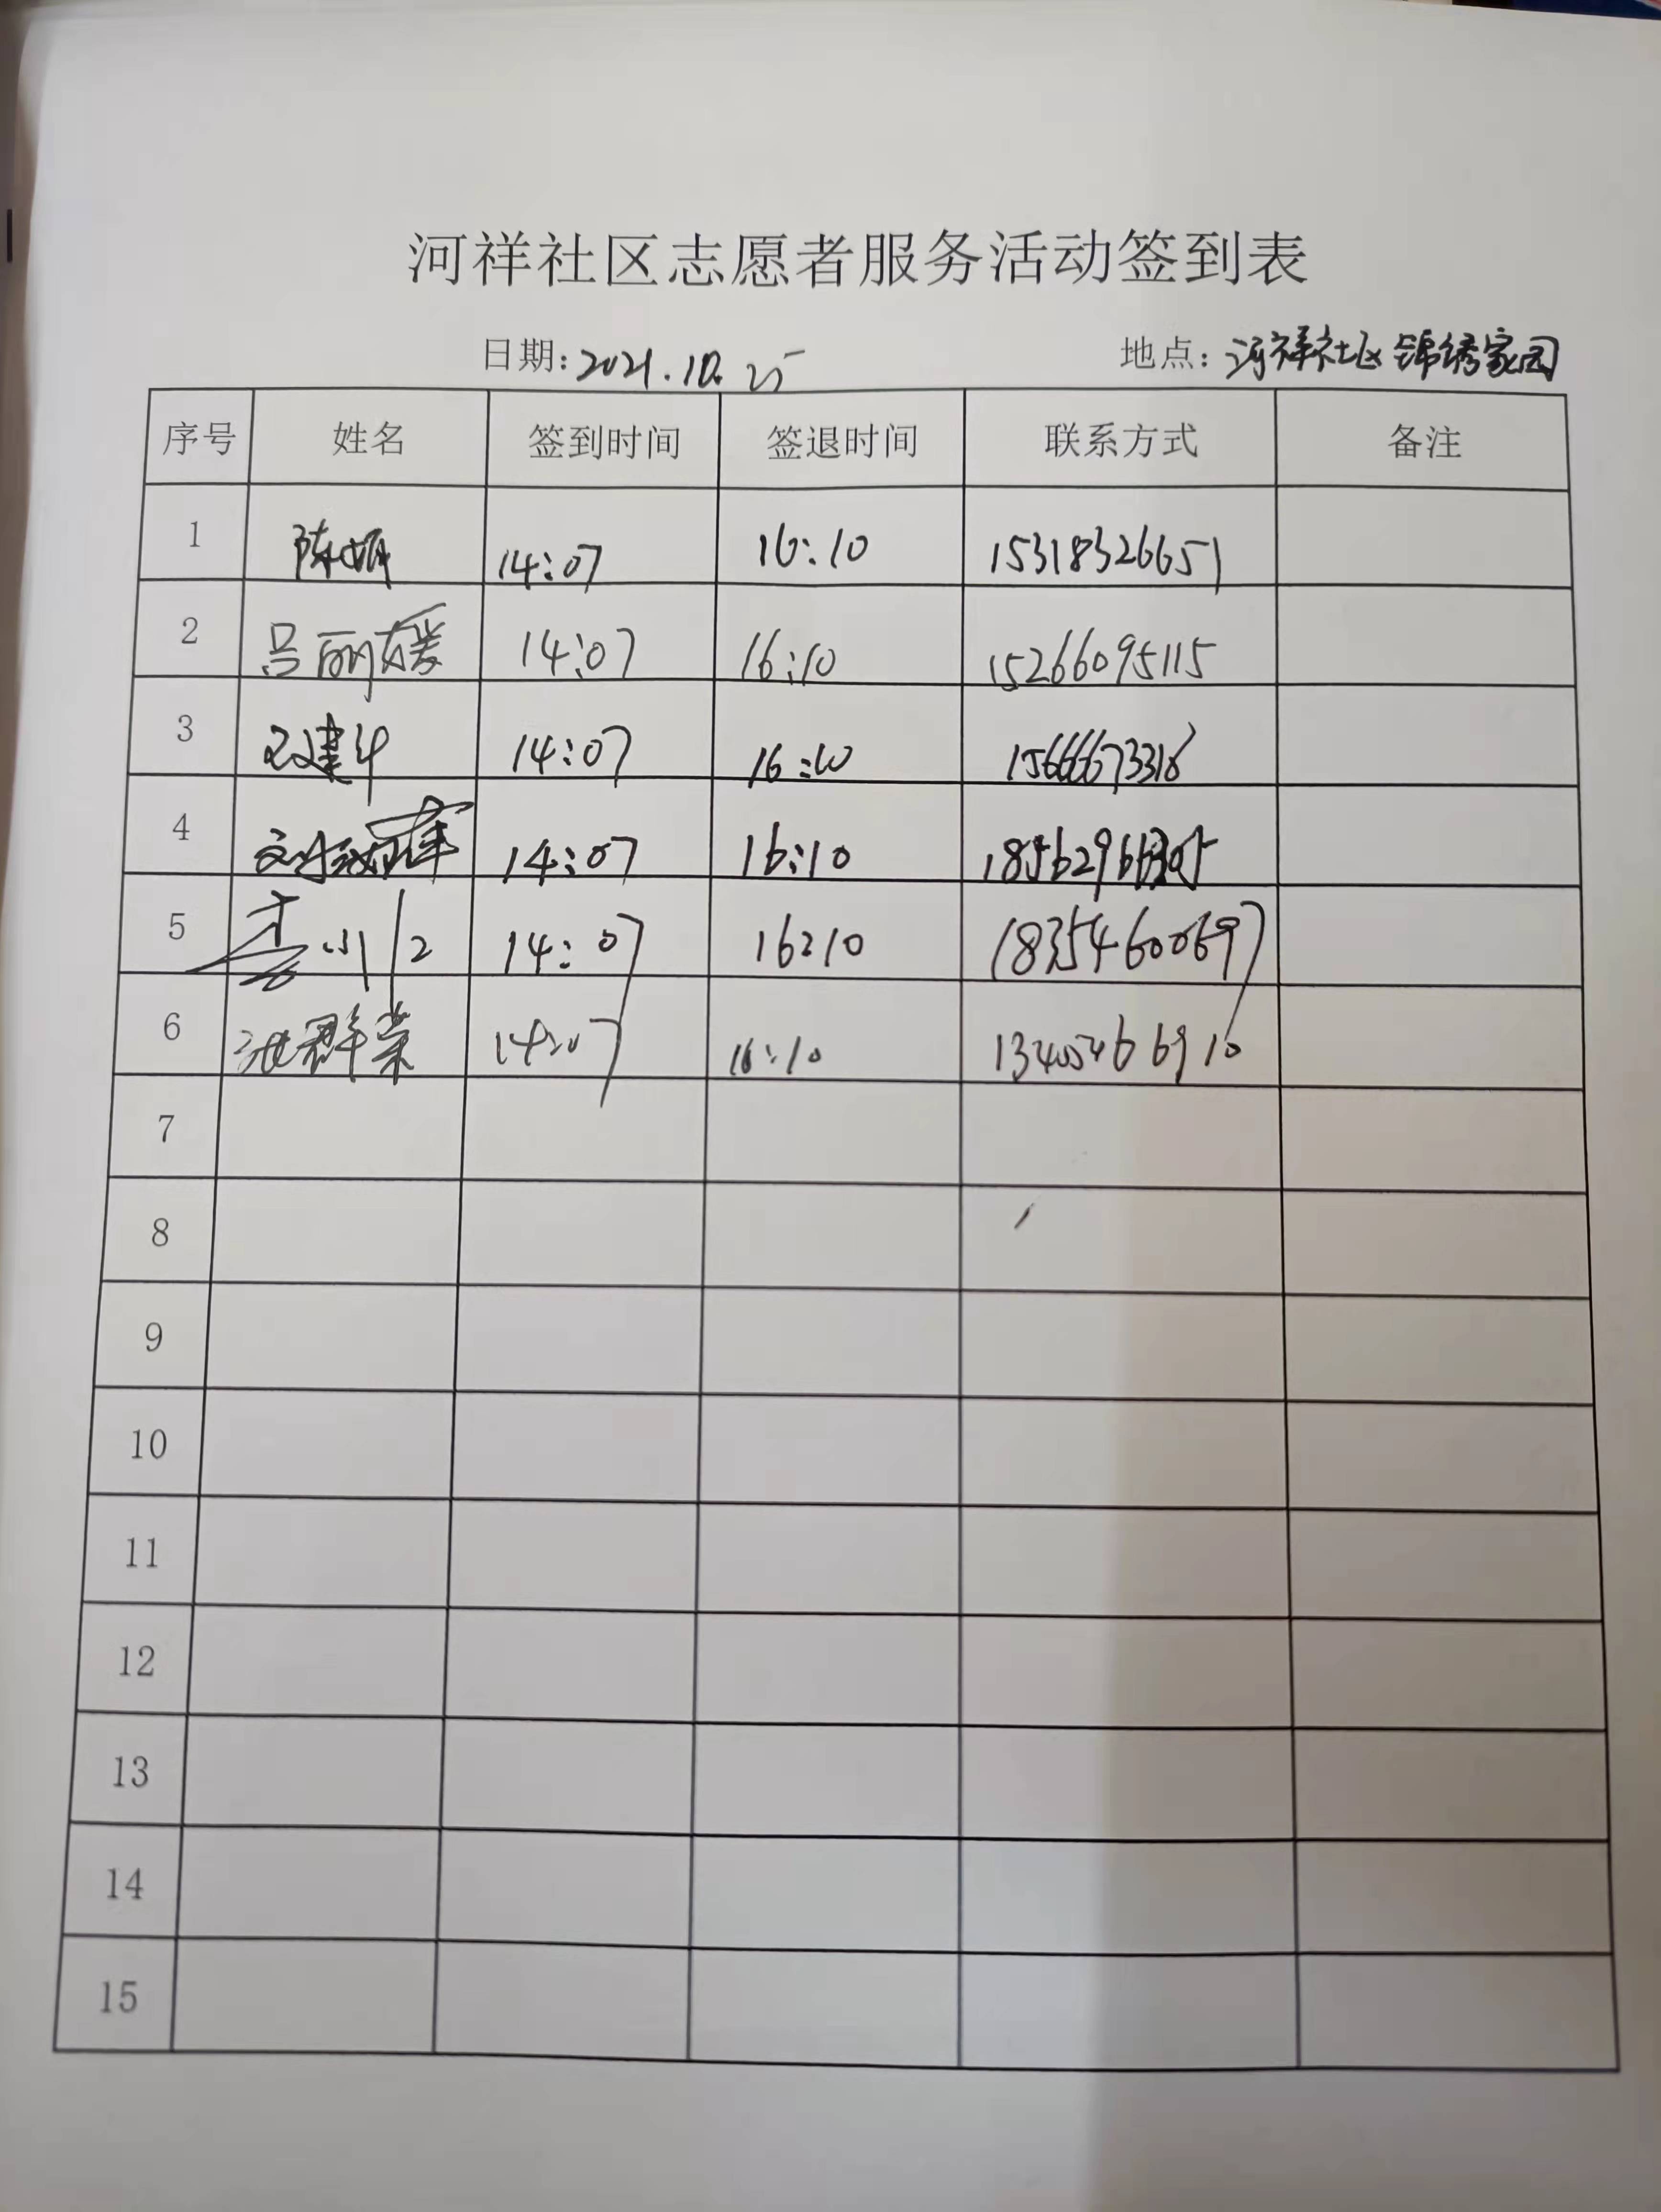 河祥社区志愿者服务活动签到表
日期：2021.10.25 地点：河祥社区锦绣家园
序号 姓名 签到时间 签退时间 联系方式 备注
1 陈娟 14:07 16:10 15318326651
2 吕丽媛 14:07 16:10 15266095115
3 王建华 14:07 16:10 15666673318
4 14:07 16:10
5 李小 14:07 16:10 18354600697
6 池群荣 14:07 16:10 13405466910
7
8
9
10
11
12
13
14
15